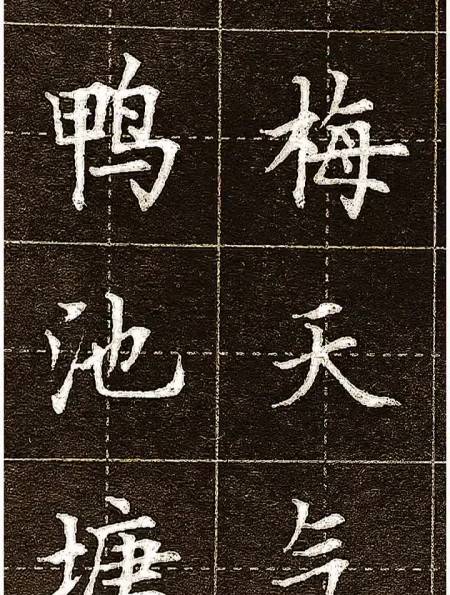 梅天气
鸭池塘